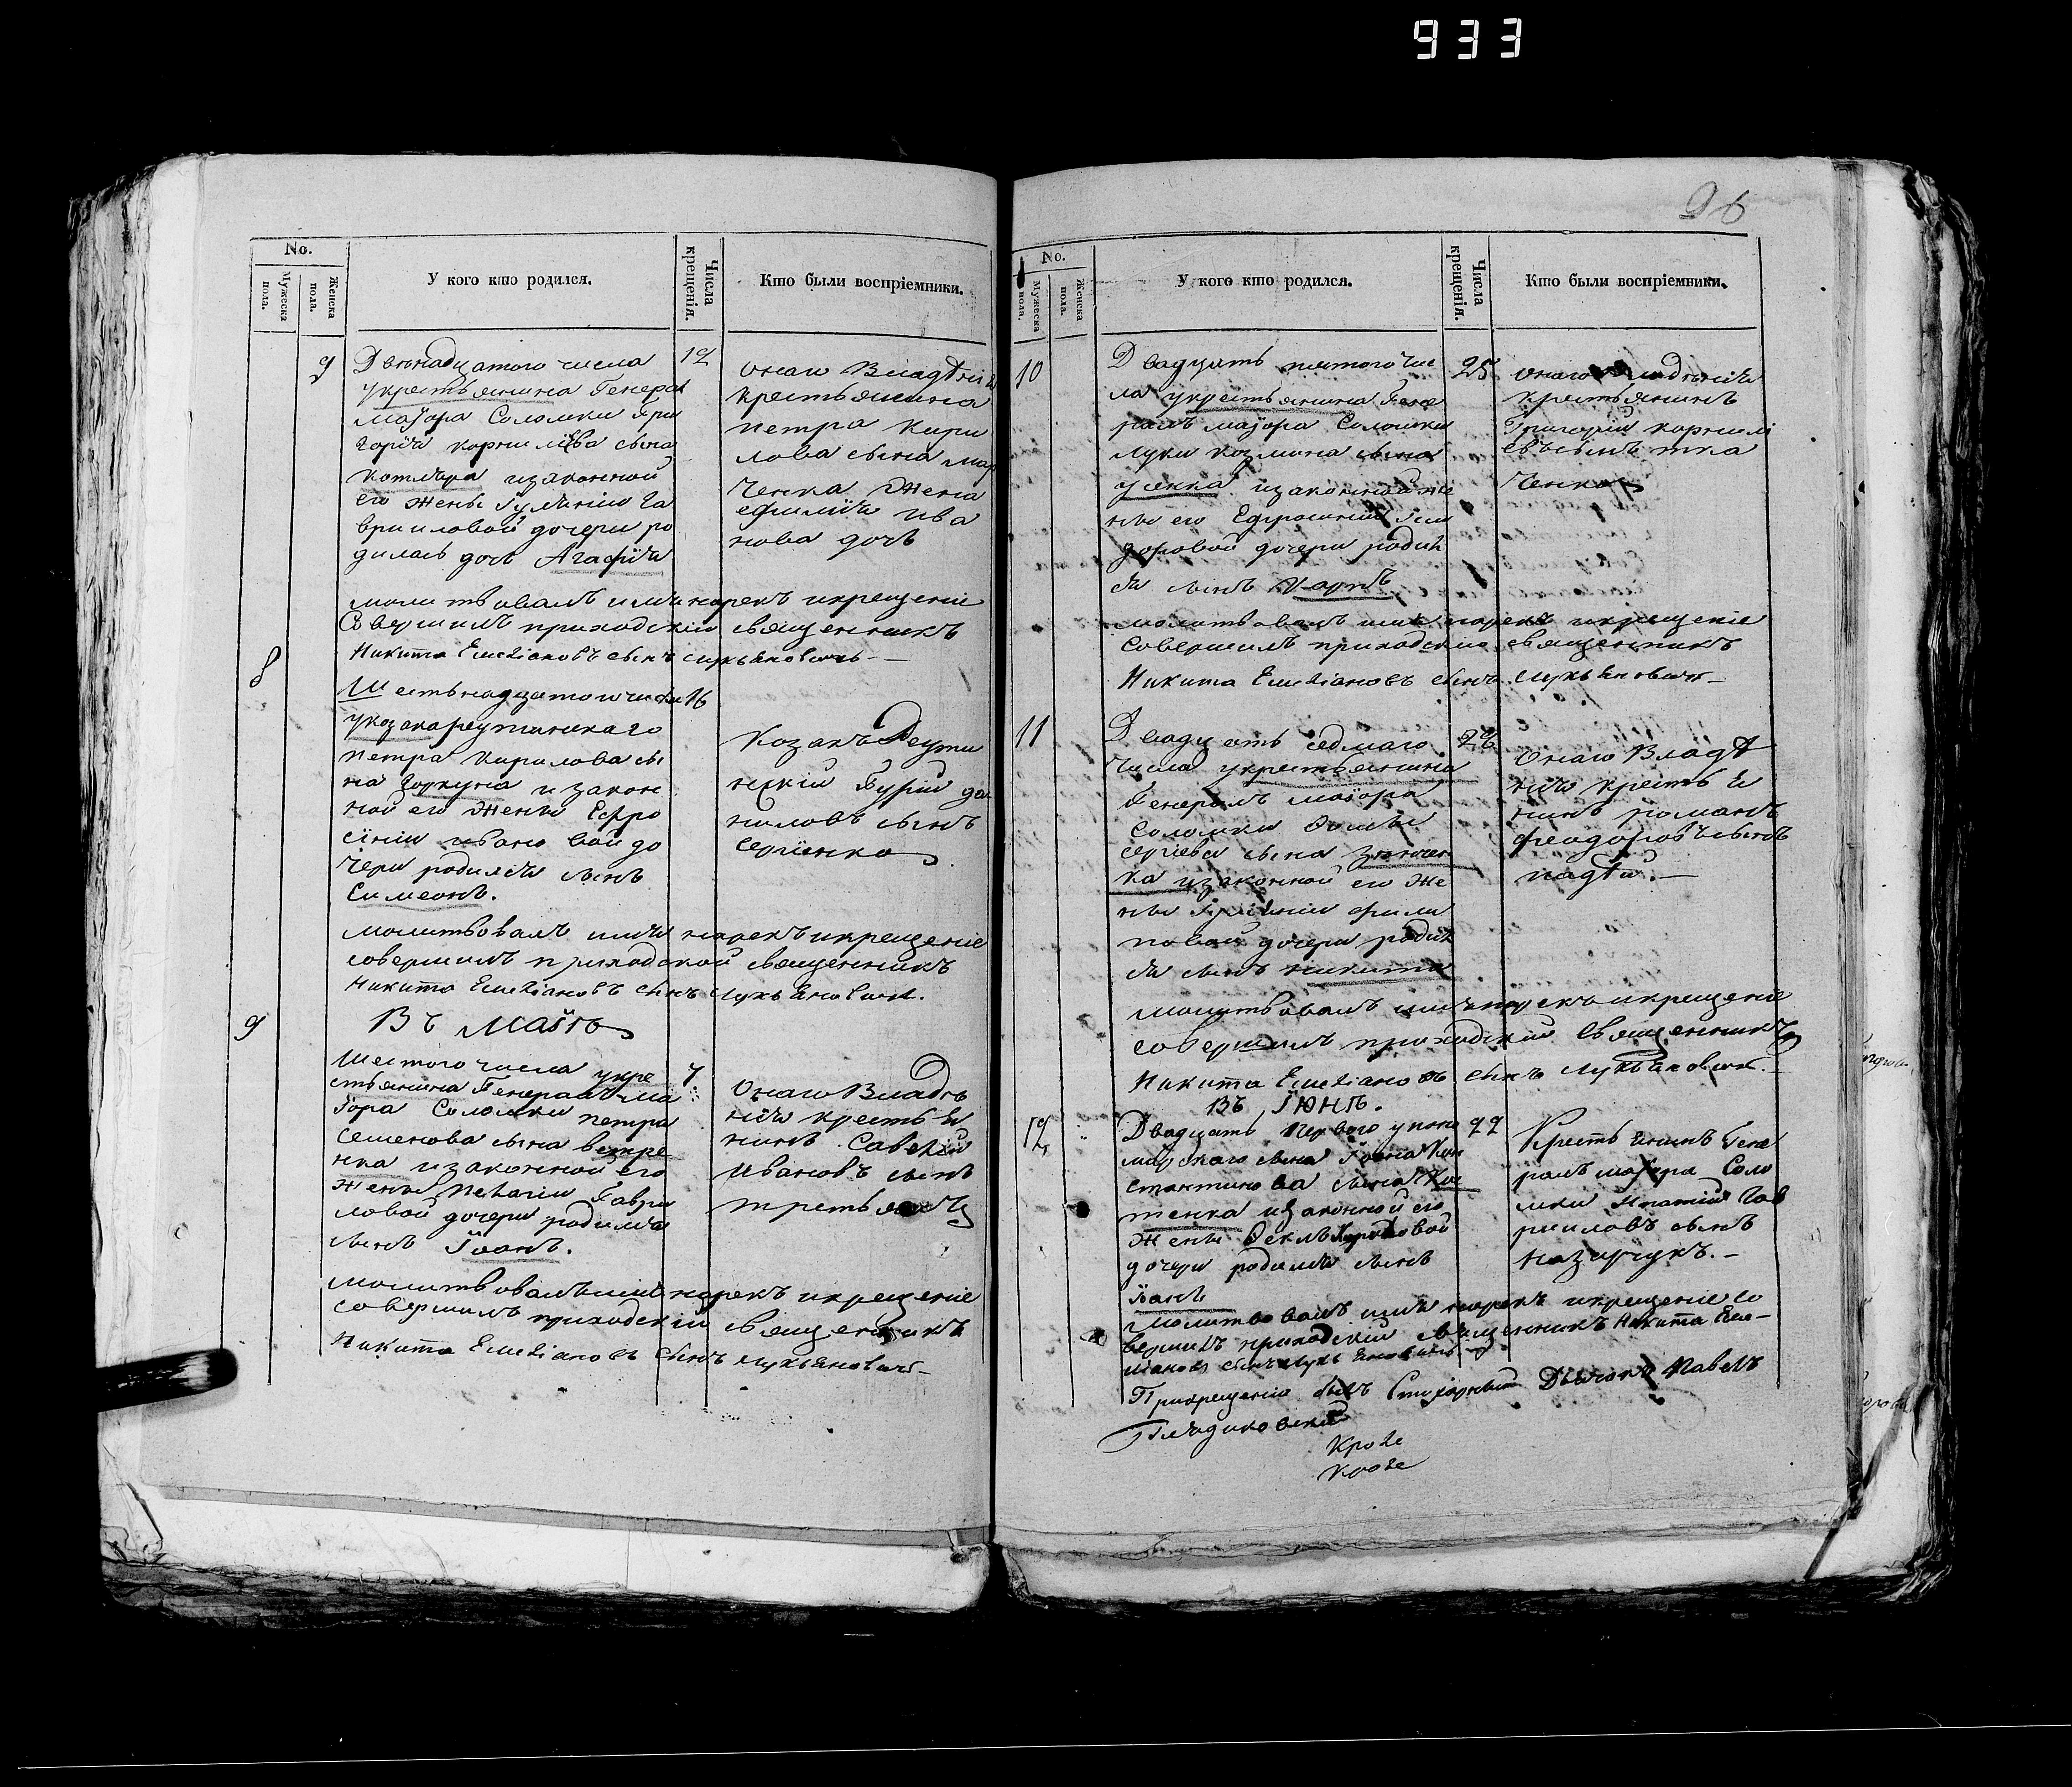 933
96
No.
Мужеска пола.
Женска пола.
У кого кто родился.
Числа крещенія.
Кто были воспріемники.
9
Двенадцатого числа
укрестьянина Генерал
маіора Соломки Гри
горія корнилієва сына
котляра изаконной
его жены Іуліяніи га
врииловой дочери ро
дилась дочь Агафія
12
онаго Владѣнія
крестьянина
петра Кири
лова сына мар
ченка Жена
ефимія ива
нова дочь
молитвовалъ имя нарекъ икрещеніе
Совершилъ приходскій священникъ
Никита Емеліановъ сынъ лукьяновичь
8
Шестьнадцатого числа
16
укозака реутинскаго
петра Кирилова сы
на Коркуна изакон
ной его жены Ефро
сініи ивано вой до
чери родился сынъ
Симеонъ.
Козакъ Реути
нскій Гурій да
ниловъ сынъ
Сергіенко
молитвовалъ имя нарекъ икрещеніе
совершилъ приходской священникъ
Никита Емеліановъ сынъ лукьяновичь.
9
Въ Маіѣ
Шестого числа укре
стьянина Генерал ма
іора Соломки петра
Семенова сына ветре
нка изаконной его
жены Пелагіи Гаври
ловой дочери родился
сынъ Іоанъ.
7
Онаго Владѣ
нія крестья
нинъ Савелій
Ивановъ сынъ
третьякъ
молитвовалъ имя нарекъ икрещеніе
совершилъ приходскій священникъ
Никита Емеліановъ сынъ лукьяновичь
No.
Мужеска пола.
Женска пола.
У кого кто родился.
Числа крещенія.
Кто были воспріемники.
10
Двадцать пятого чис
ла укрестьянина Гене
ралъ маіора Соломки
луки козмина сына
усенка изаконной же
ны его Ефросиніи Іси
доровой дочери родил
ся сынъ Карпъ
25
онаго владѣнія
крестьянинъ
Григорій корнилі
евъ сынъ тка
ченко
молитвовалъ имя нарекъ икрещеніе
совершилъ приходскій священникъ
Никита Емеліановъ сынъ лукьяновичь
11
Двадцать седмаго
числа укрестьянина
Генералъ маіора
Соломки
сергіева сына зінчен
ка изаконной его же
ны Іуліяніи фили
повой дочери родил
ся сынъ никита
28
Онаго Владѣ
нія крестья
нинъ романъ
феодоровъ сынъ
надѣй.
молитвовалъ имя нарекъ икрещеніе
совершилъ приходскій Священникъ
Никита Емеліановъ сынъ Лукьяновичь.
Въ Іюнѣ.
12
Двадцать Первого упоно
марскаго сына Іоана Кон
стантинова сына Кос
тенка изаконной его
жены Феклы Карповой
дочери родился сынъ
Іоанъ
22
Крестьянинъ Гене
ралъ маіора Соло
мки Игнатій Гав
рииловъ сынъ
назарчукъ.
Молитвовалъ имя нарекъ икрещеніе со
вершилъ приходскій священникъ Никита Еме-
ліановъ сынъ лукьяновичь
Прикрещеніи былъ Стихарный Дьячокъ Павелъ
Кроле
Кроле